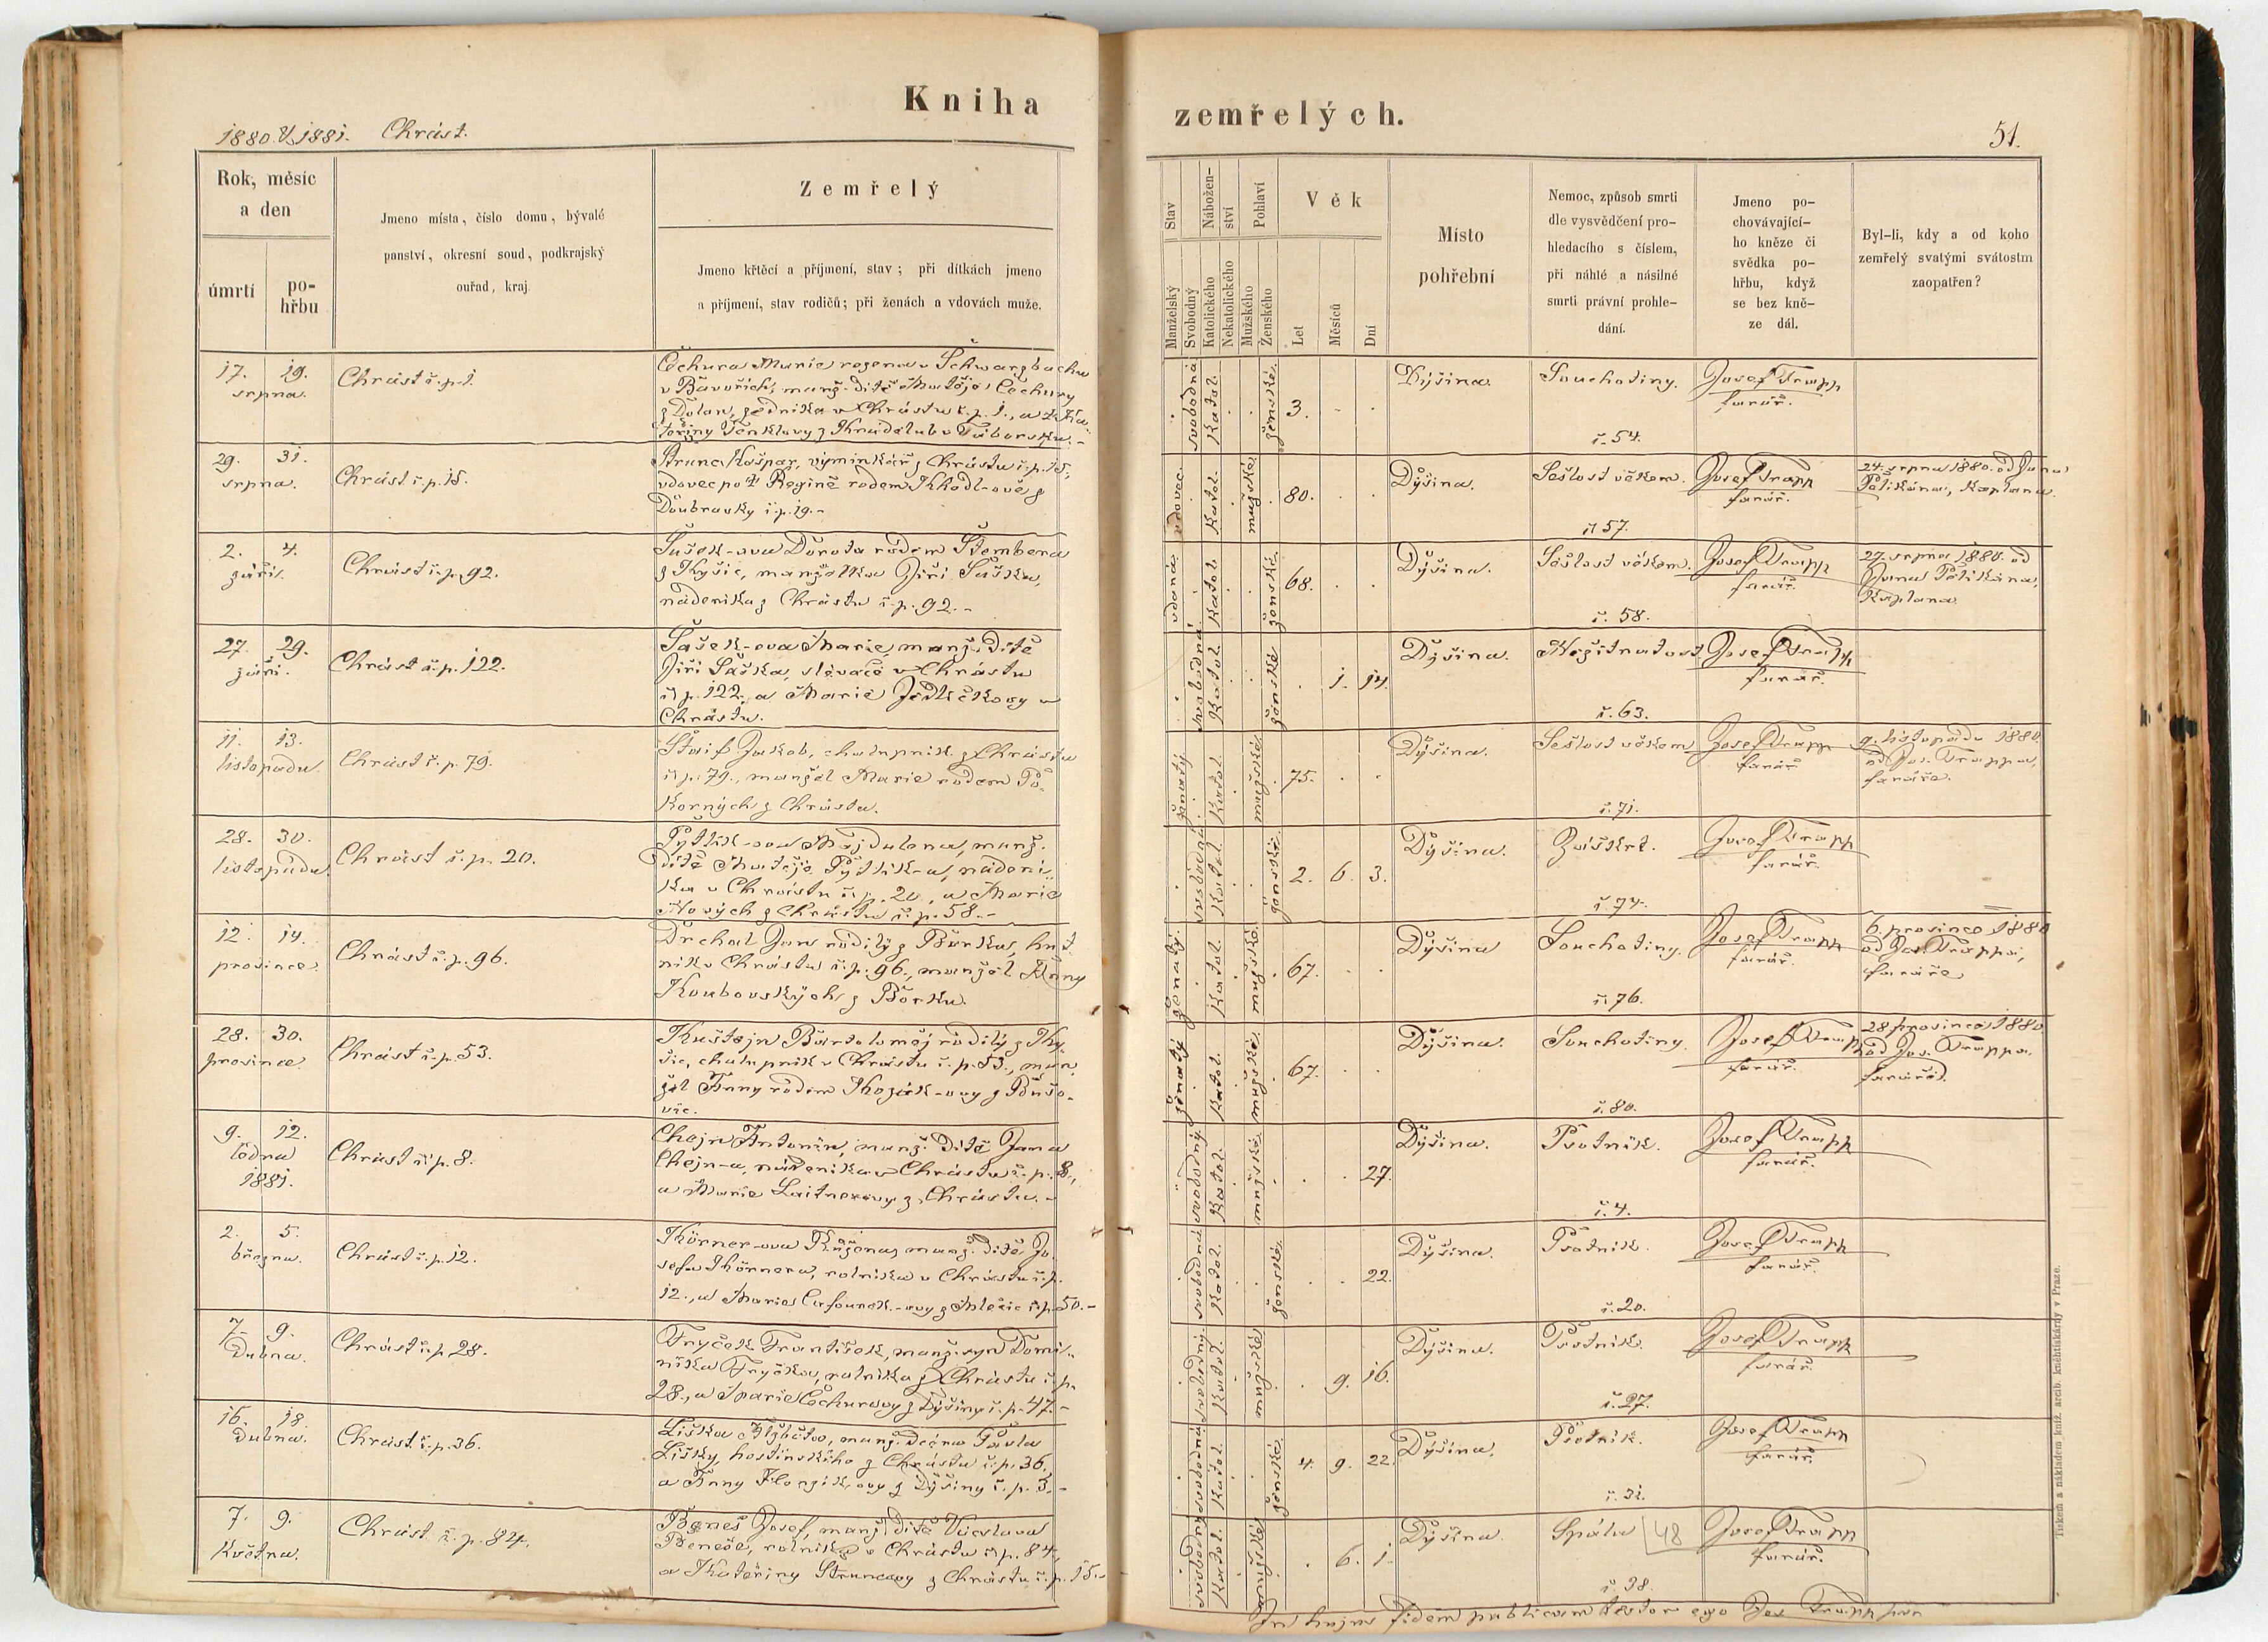 Kniha zemřelých.
1880. & 1881. Chrást.
51.
Rok, měsíc
a den
úmrtí
po-
hřbu
Jmeno místa, číslo domu, bývalé
panství, okresní soud, podkrajský
ouřad, kraj.
Zemřelý
Jmeno křtěcí a příjmení, stav; při dítkách jmeno
a příjmení, stav rodičů; při ženách a vdovách muže.
Stav
Manželský
Svobodný
Nábožen-
ství
Katolického
Nekatolického
Pohlaví
Mužského
Ženského
Věk
Let
Měsíců
Dní
Místo
pohřební
Nemoc, způsob smrti
dle vysvědčení pro-
hledacího s číslem,
při náhlé a násilné
smrti právní prohle-
dání.
Jmeno po-
chovávající-
ho kněze či
svědka po-
hřbu, když
se bez kně-
ze dál.
Byl-li, kdy a od koho
zemřelý svatými svátostm
zaopatřen?
17. 19.
srpna.
Chrást č. p. 1.
Čechura Marie rozena v Schwarzbachu
v Bavořích, manž. dítě Matěje Čechury
z Dolan, zedníka v Chrástu č. p. 1., a Ka-
teřiny
svobodná
Katol.
ženské.
3.
Dýšina.
Souchotiny.
č. 54.
Josef Trapp
farář.
29. 31.
srpna.
Chrást č. p. 15.
Strunc Kašpar, výminkář z Chrástu č. p. 15.,
vdovec po † Regině rodem Khodl-ově z
Doubravky č. p. 19. -
vdovec.
Katol.
mužské.
80.
Dýšina.
Sešlost věkem.
č. 57.
Josef Trapp
farář.
24. srpna 1880. od Jana
Petikána, kaplana.
2. 4.
září.
Chrást č. p. 92.
Šašek-ova Dorota rodem Štembera
z Kyšic, manželka Jiří Šaška,
nádeníka z Chrástu č. p. 92. -
vdaná.
Katol.
ženské.
68.
Dýšina.
Sešlost věkem.
č. 58.
Josef Trapp
farář.
27. srpna 1880. od
Jana Petikána,
kaplana.
27. 29.
září.
Chrást č. p. 122.
Šašek-ova Marie, manž. dítě
Jiří Šaška, slévače v Chrástu
č. p. 122., a Marie Jedličkovy v
Chrástu.
svobodná
Katol.
ženské
1. 14.
Dýšina.
Nežitnatost
č. 63.
Josef Trapp
farář.
11. 13.
listopadu.
Chrást č. p. 79.
Jakob, chalupník z Chrástu
č. p. 79., manžel Marie rodem Po-
korných z Chrástu.
ženatý
Katol.
mužské.
75.
Dýšina.
Sešlost věkem
č. 71.
Josef Trapp
farář
9. listopadu 1880.
od Jos. Trappa,
faráře.
28. 30.
listopadu
Chrást č. p. 20.
Pytlík-ova Majdalena, manž.
dítě Matěje Pytlík-a, nádení-
ka v Chrástu č. p. 20., a Marie
Nových z Chrástu č. p. 58. -
svobodná.
Katol.
ženské.
2. 6. 3.
Dýšina.
Záškrt.
č. 74.
Josef Trapp
farář.
12. 14.
prosince.
Chrást č. p. 96.
Drchal Jan rodilý z Borku, hut
ník v Chrástu č. p. 96., manžel Anny
Koubovských z Borku.
ženatý.
Katol.
mužské.
67.
Dýšina
Souchotiny.
č. 76.
Josef Trapp
farář.
6. prosince 1880
od Jos. Trappa,
faráře
28. 30.
prosince
Chrást č. p. 53.
Kuštejn Bartoloměj rodilý z Ky-
šic, chalupník v Chrástu č. p. 53., man-
žel Anny rodem Kozák-ovy z Bušo-
vic.
ženatý
Katol.
mužské.
67.
Dýšina.
Souchotiny.
č. 80.
Josef Trapp
farář.
28. prosince 1880
od Jos. Trappa,
faráře.
9. 12.
ledna
1881.
Chrást č. p. 8.
Chejn Antonín, manž. dítě Jana
Chejn-a, nádeníka v Chrástu č. p. 8.,
a Marie Laitnerovy z Chrástu. -
svobodný.
Katol.
mužské.
27.
Dýšina.
Psotník.
č. 4.
Josef Trapp
farář.
2. 5.
března.
Chrást č. p. 12.
Körner-ova Růžena, manž. dítě Jo-
sefa Körnera, rolníka v Chrástu č. p.
12., a Marie Cafourek-ovy z č. p. 50. -
svobodná
Katol.
ženské.
22.
Dýšina.
Psotník.
č. 20.
Josef Trapp
farář.
7. 9.
Dubna.
Chrást č. p. 28.
Fryček František, manž. syn Domi-
nika Fryčka, rolníka z Chrástu č. p.
28., a Marie Čechurovy z Dýšiny č. p. 47. -
svobodný.
Katol.
mužské
9. 16.
Dýšina.
Psotník.
č. 27.
Josef Trapp
farář.
16. 18.
Dubna.
Chrást č. p. 36.
Liška Alžběta, manž. dcéra Pavla
Lišky, hostinského z Chrástu č. p. 36.,
a Anny z Dýšiny č. p. 3. -
svobodná
Katol.
ženské
4. 9. 22.
Dýšina.
Psotník.
č. 31.
Josef Trapp
farář.
7. 9.
Května.
Chrást č. p. 84.
Beneš Josef, manž. dítě Václava
Beneše, rolníka v Chrástu č. p. 84.,
a Kateřiny Struncovy z Chrástu č. p. 15. -
svobodný
Katol.
mužské
6. 1.
Dýšina.
Spála 48
č. 38.
Josef Trapp
farář.
In hujus fidem publicam testor ego Jos. Trapp
Tiskem a nákladem kníž. arcib. kněhtiskárny v Praze.